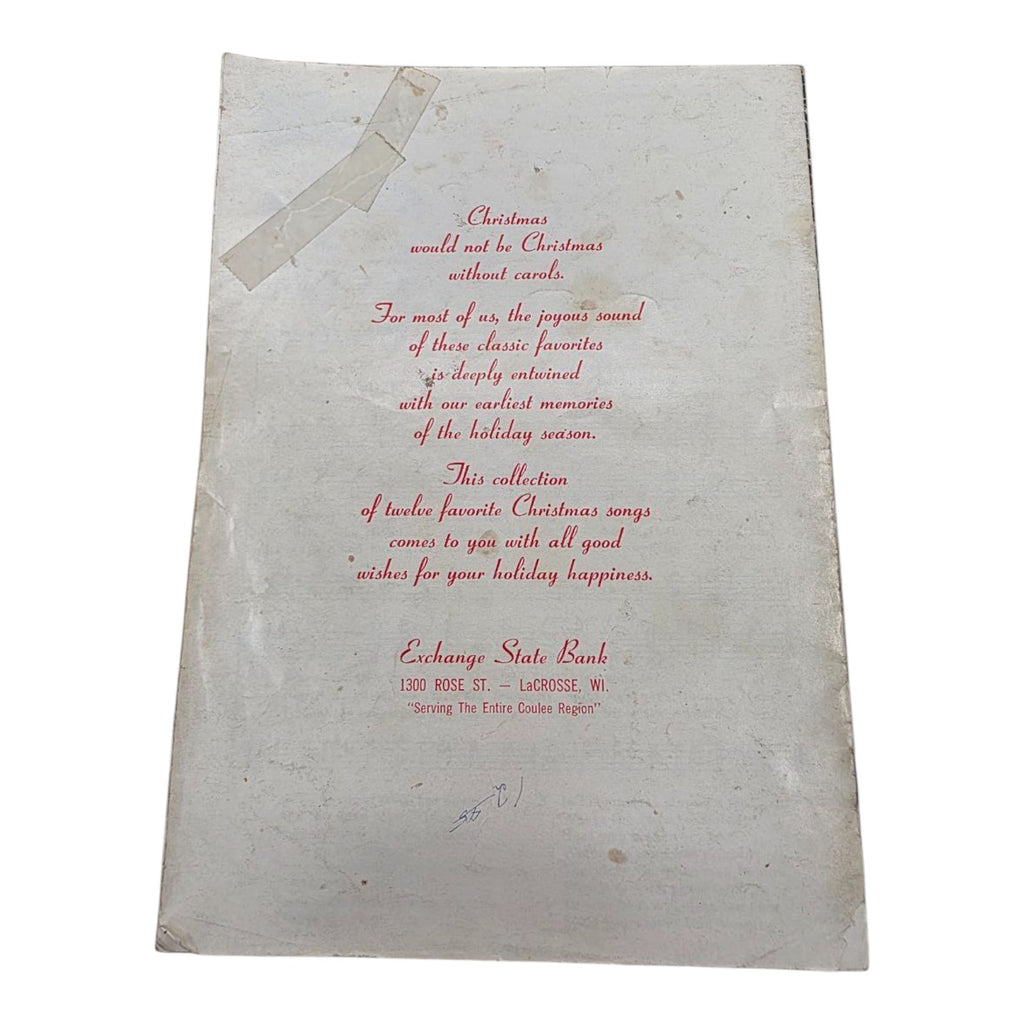 Christmas
would not be Christmas
without carols.
For most of us, the joyous sound
of these classic favorites
is deeply entwined
with our earliest memories
of the holiday season.
This collection
of twelve favorite Christmas songs
comes to you with all good
wishes for your holiday happiness.
Exchange State Bank
1300 ROSE ST. — LaCROSSE, WI.
"Serving The Entire Coulee Region"